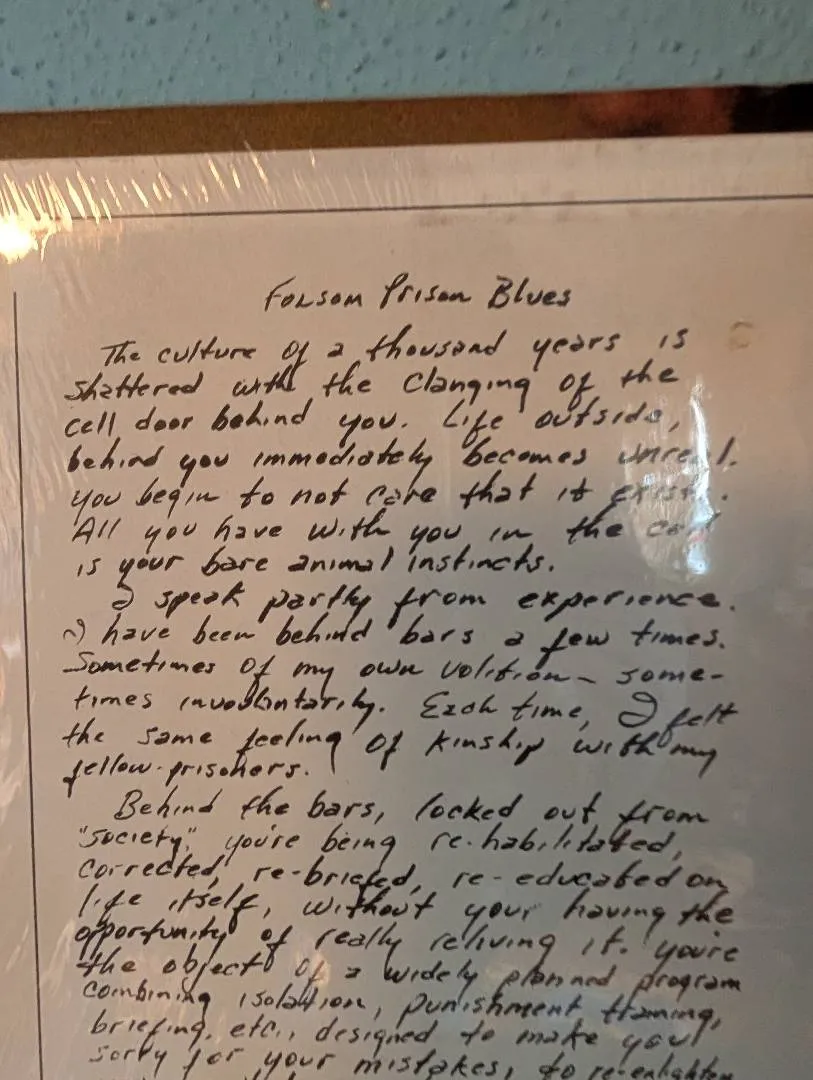 Folsom Prison Blues
The culture of a thousand years is
shattered with the clanging of the
cell door behind you. Life outside,
behind you immediately becomes unreal.
You begin to not care that it exists.
All you have with you in the cell
is your bare animal instincts.
I speak partly from experience.
I have been behind bars a few times.
Sometimes of my own volition - some-
times involuntarily. Each time, I felt
the same feeling of kinship with my
fellow-prisoners.
Behind the bars, locked out from
"society," you're being re-habilitated,
corrected, re-briefed, re-educated on
life itself, without your having the
opportunity of really reliving it. You're
the object of a widely planned program
combining isolation, punishment, training,
briefing, etc., designed to make you
sorry for your mistakes, to re-enlighten